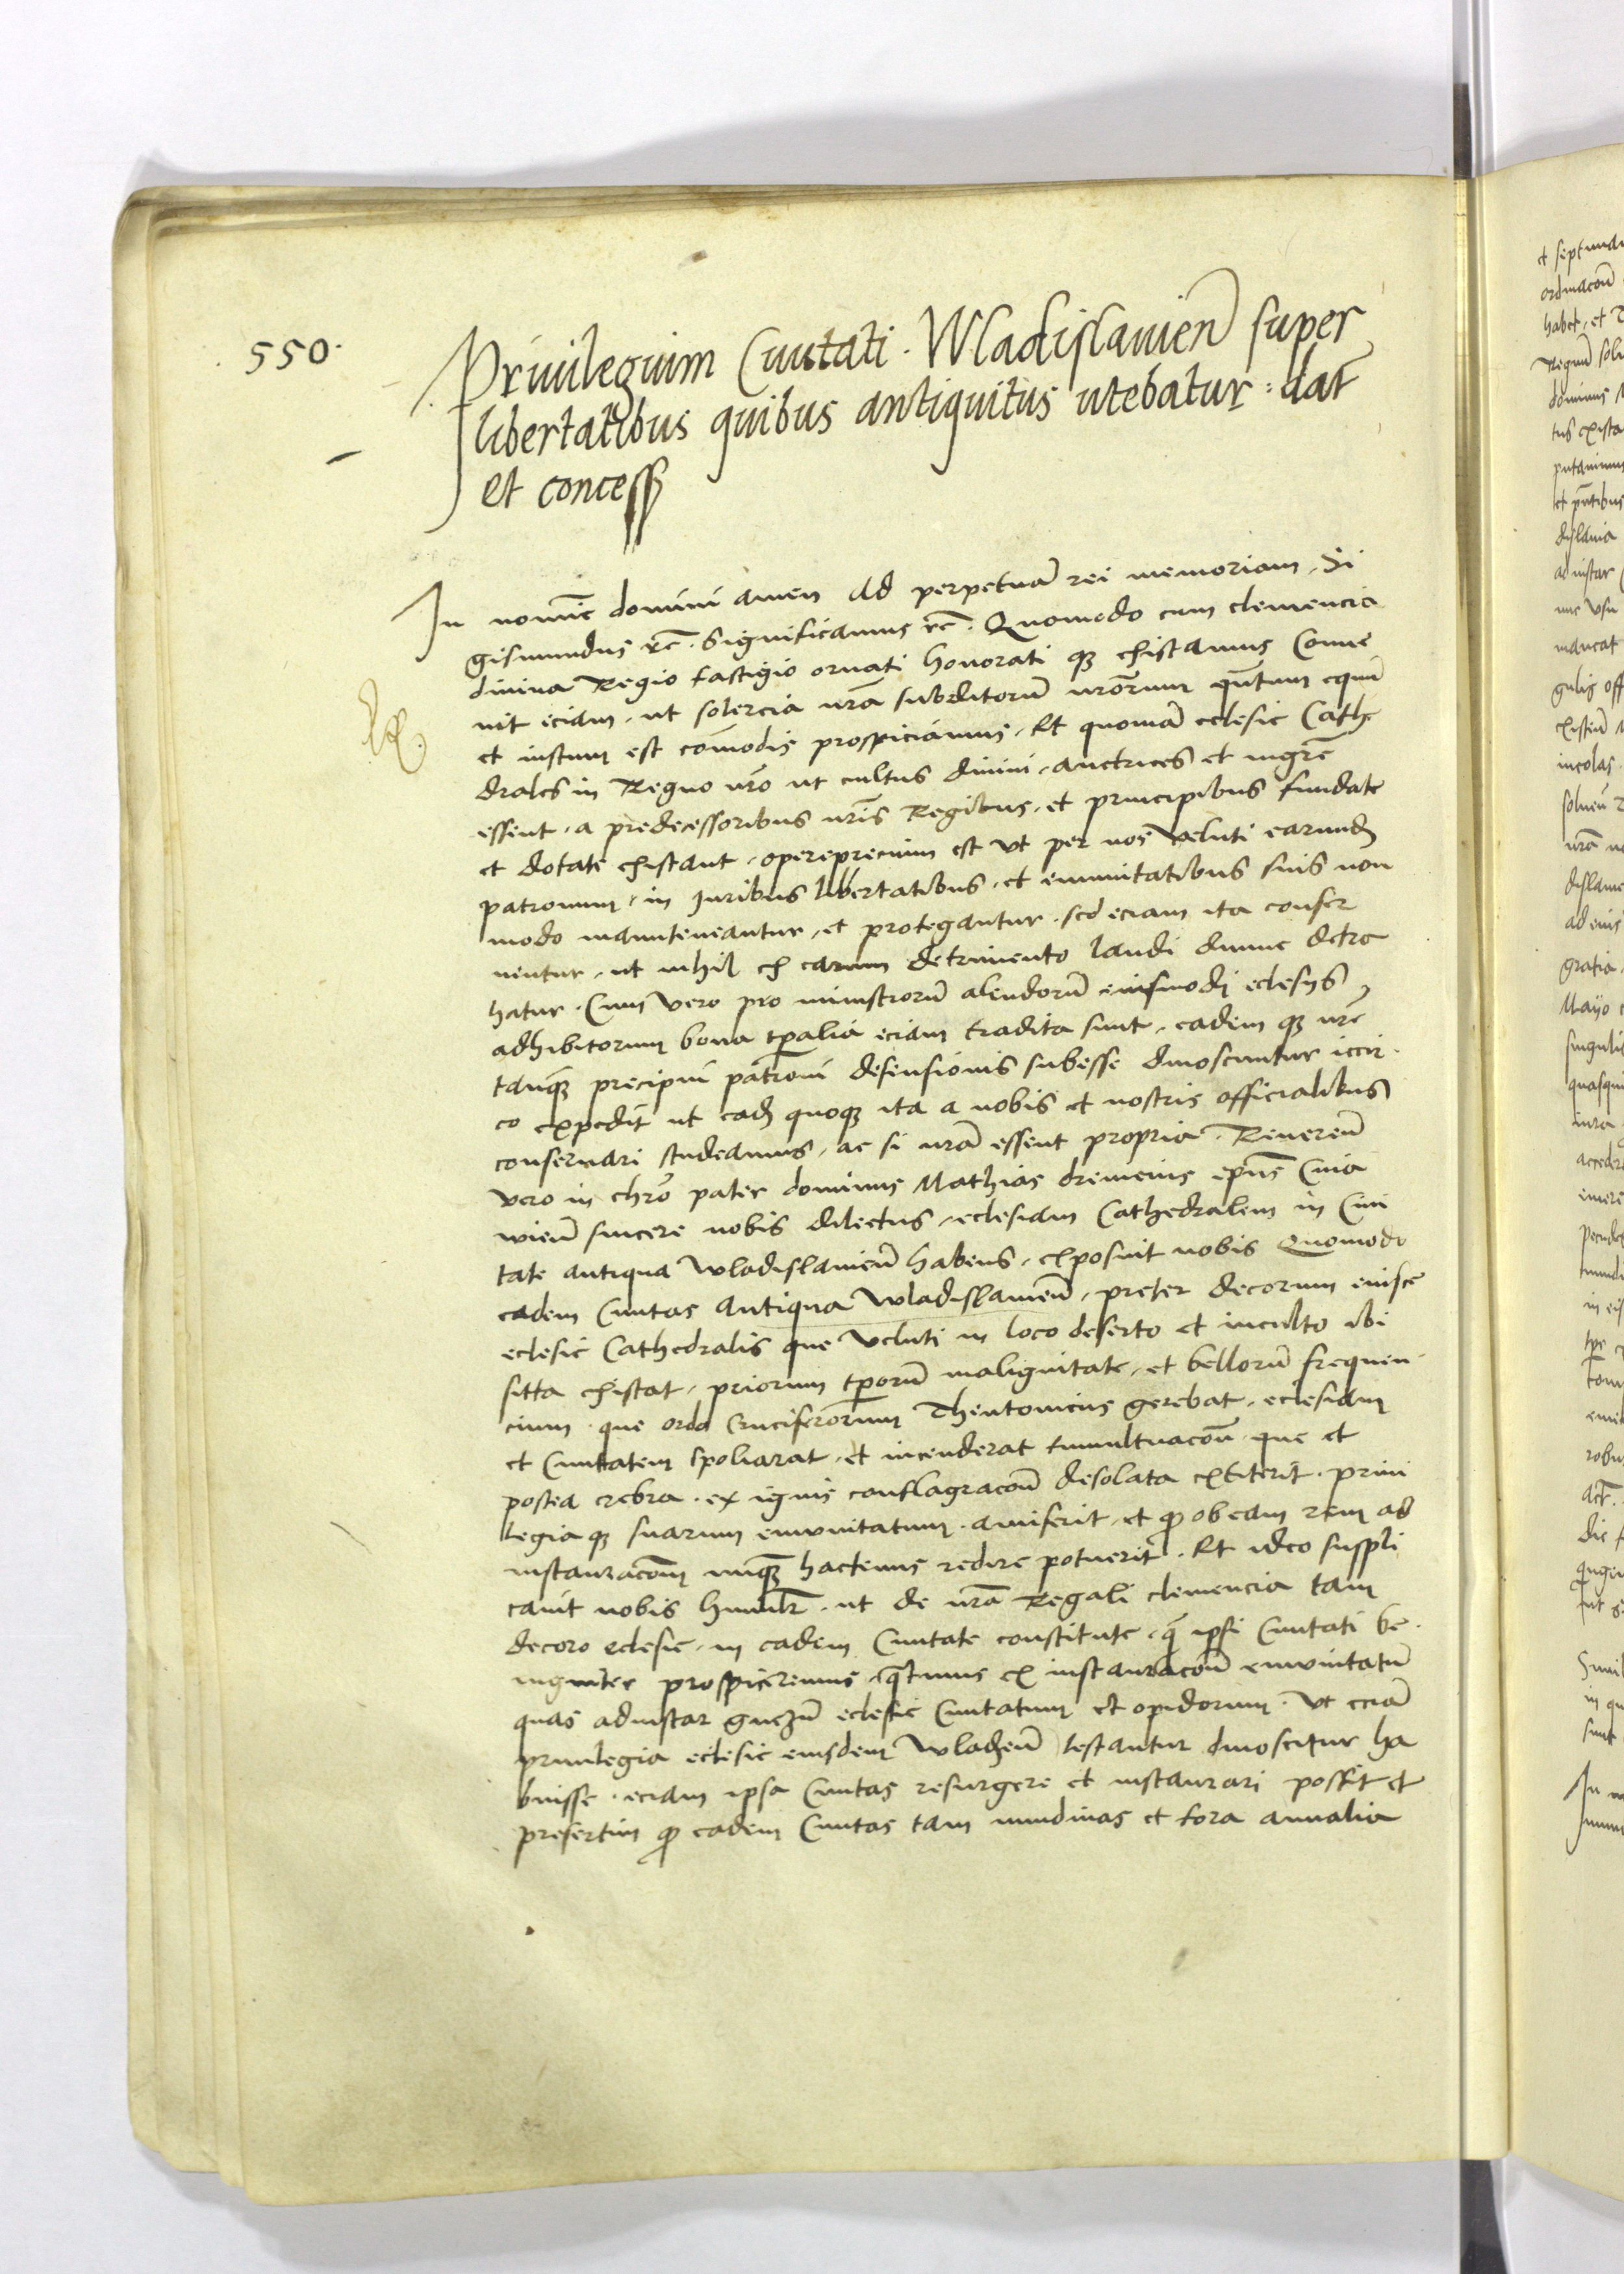 550.
Priuilegium Ciuitati Wladislauien̄ super
libertatibus quibus antiquitus utebatur dat̄
et concess
In nomīe domini amen Ad perpetuā rei memoriam, Si
gismundus rc̄. Significamus rc̄. Quomodo cum clemencia
diuina Regio fastigio ornati honorati qȝ existamus Conue
nit eciam, ut solercia nrā subditorū nrōrum quātum equū
et iustum est cōmodis prospiciamus, Et quoniā eclesie Cathe
drales in Regno nrō ut cultus diuini, auctrices et
essent, a predecessoribus nrīs Regibus, et principibus fundate
et dotate existant, opereprecium est ut per nos veluti earundē
patronum, in Juribus libertatibus, et immunitatibus suis non
modo manuteneantur, et protegantur, sed eciam ita conser
uentur, ut nihil ex earum detrimento laudi diuine detra
hatur. Cum vero pro ministrorū alendorū eiusmodi eclesiis
adhibitorum bona tp̄alia eciam tradita sunt, eadem qȝ nrē
tanqȝ precipui patroni defensionis subesse dinoscuntur iccir
co expedit ut eadē quoqȝ ita a nobis et nostris officialibus
conseruari studeamus, ac si nrā essent propria. Reueren̄
vero in chrō pater dominus Mathias dreuicius ep̄us Cuia
wien̄ sincere nobis dilectus, eclesiam Cathedralem in Ciui
tate antiqua wladislauien̄ habens, exposuit nobis Quomodo
eadem Ciuitas antiqua wladislauien̄, preter decorum eiusce
eclesie Cathedralis que veluti in loco deserto et inculto ibi
sitta existat, priorum tp̄orū malignitate, et bellorū frequen
cium que ordo Cruciferorum Theutonicus gerebat, eclesiam
et Ciuitatem spoliarat, et incenderat tumultuacōn que et
postea crebra ex ignis conflagracōn desolata extiterit, priui
legia qȝ suarum immunitatum amiserit, et qȝ ob eam rem ad
instauracōm nunqȝ hactenus redire potuerit. Et ideo suppli
cauit nobis humilr̄, ut de nrā Regali clemencia tam
decoro eclesie, in eadem Ciuitate constitute, qȝ ipsi Ciuitati be
nigniter prospiceremus, quatinus ex instauracōn immunitatū
quas adinstar gnezn̄ eclesie Ciuitatum et opidorum. Ut eciā
priuilegia eclesie eiusdem wladien̄ testantur dinoscitur ha
buisse, eciam ipsa Ciuitas resurgere et instaurari possit et
presertim qȝ eadem Ciuitas tam nundinas et fora annalia